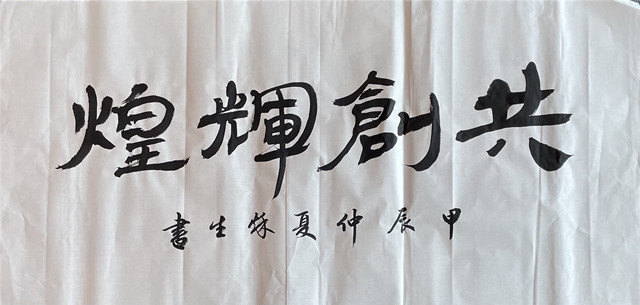 共創輝煌
甲辰仲夏生書